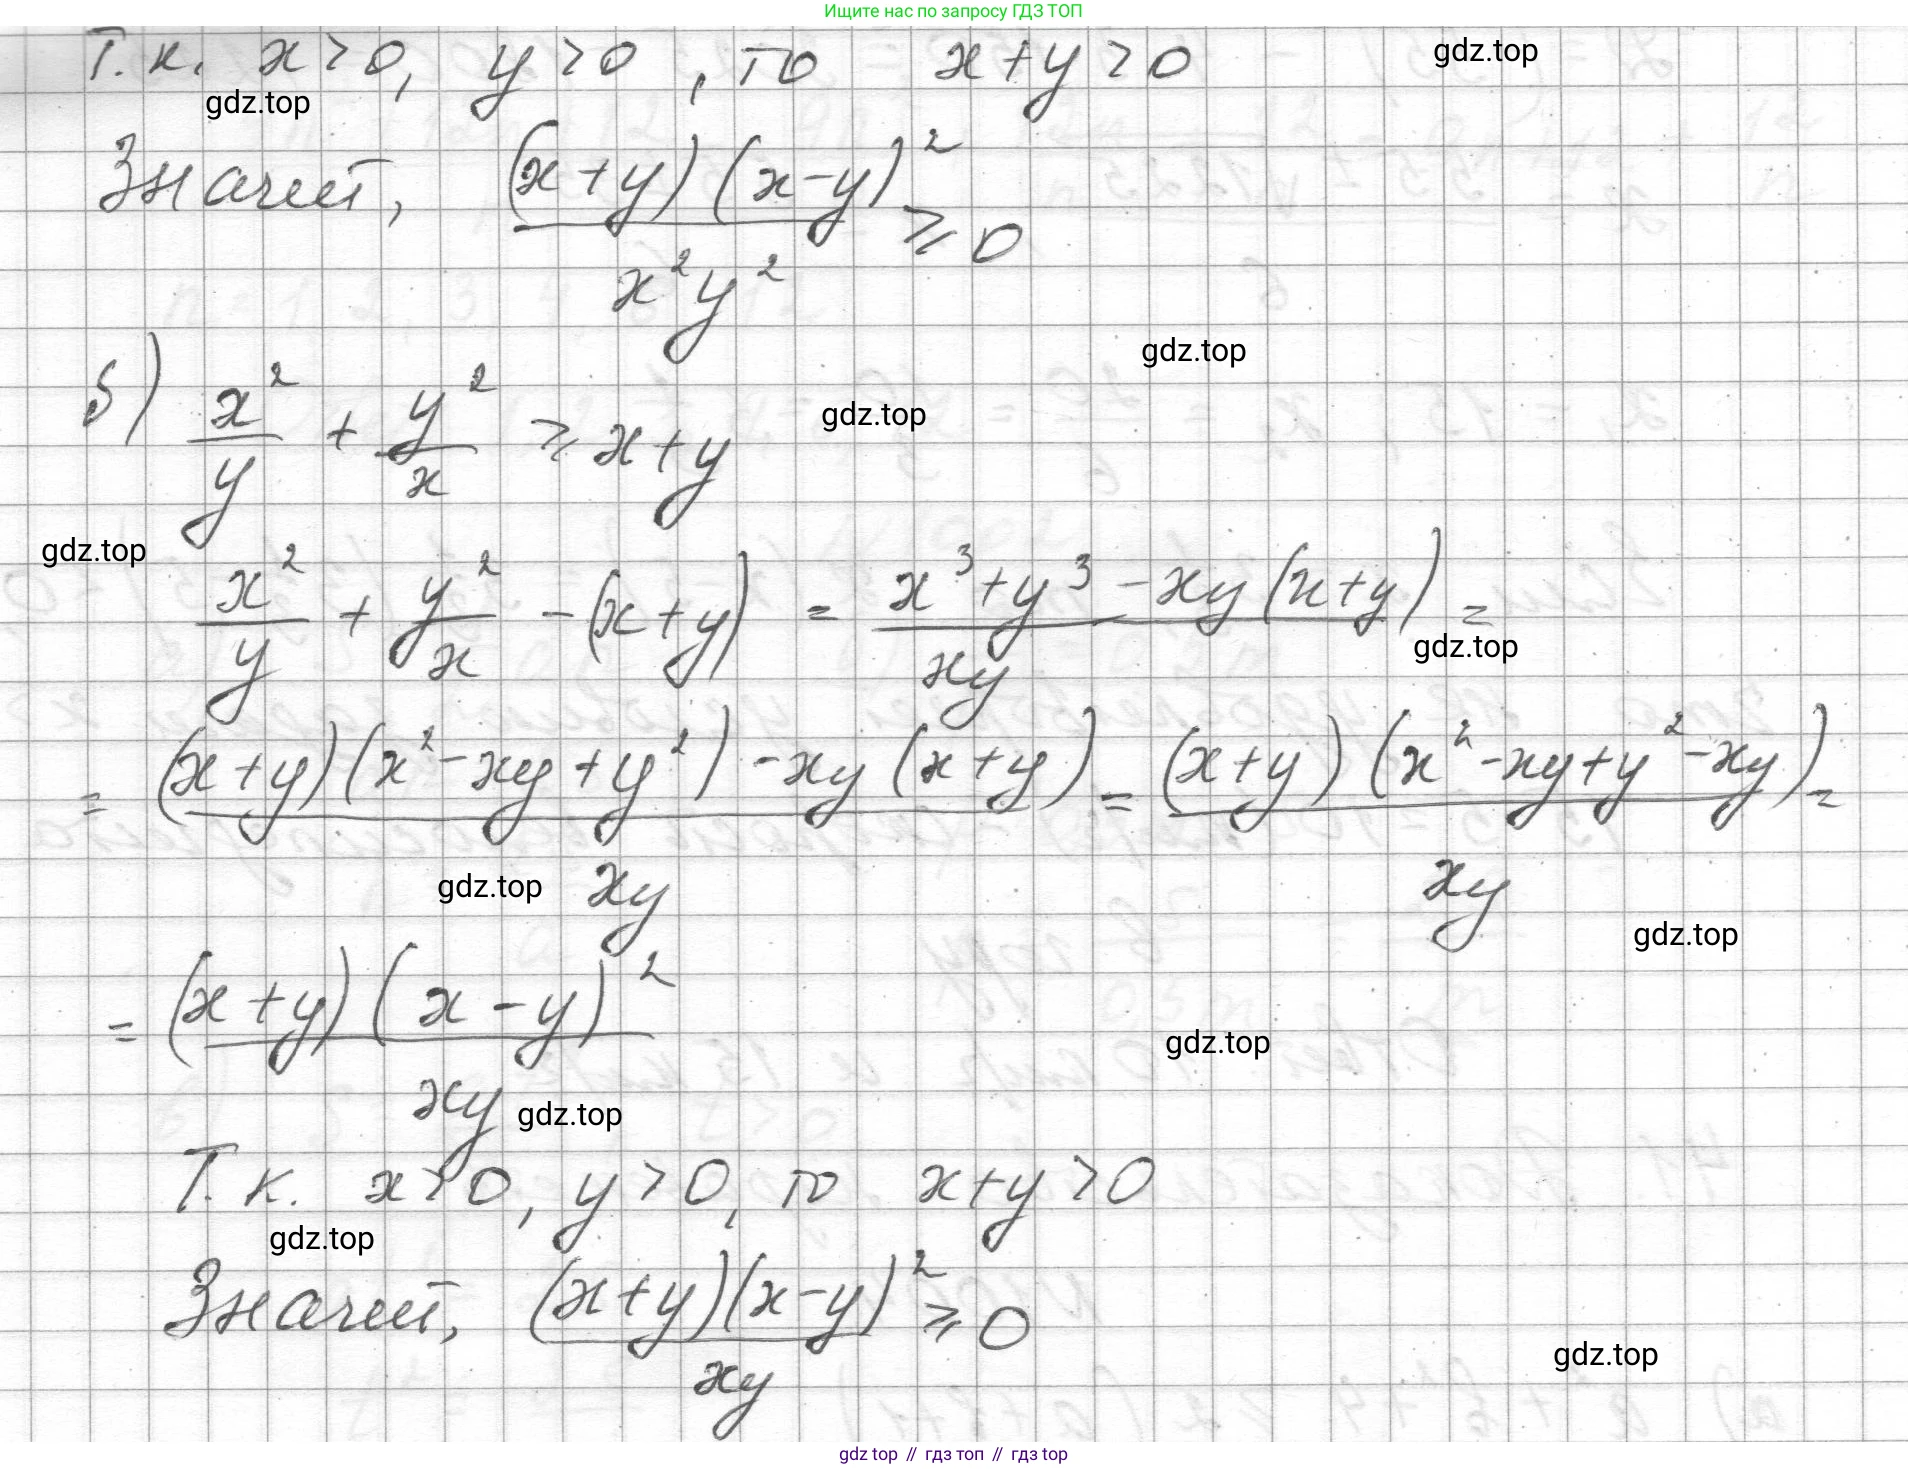 Ищите нас по запросу ГДЗ ТОП
Т.к. x > 0, y > 0, то x + y > 0
gdz.top
gdz.top
Значит, (x+y)(x-y)² / x²y² ≥ 0
gdz.top
б) x²/y + y²/x ≥ x + y
gdz.top
gdz.top
x²/y + y²/x - (x+y) = (x³ + y³ - xy(x+y)) / xy =
gdz.top
= ((x+y)(x² - xy + y²) - xy(x+y)) / xy = (x+y)(x² - xy + y² - xy) / xy =
gdz.top
gdz.top
= (x+y)(x-y)² / xy
gdz.top
gdz.top
Т.к. x > 0, y > 0, то x + y > 0
gdz.top
Значит, (x+y)(x-y)² / xy ≥ 0
gdz.top
gdz top // гдз топ // гдз top